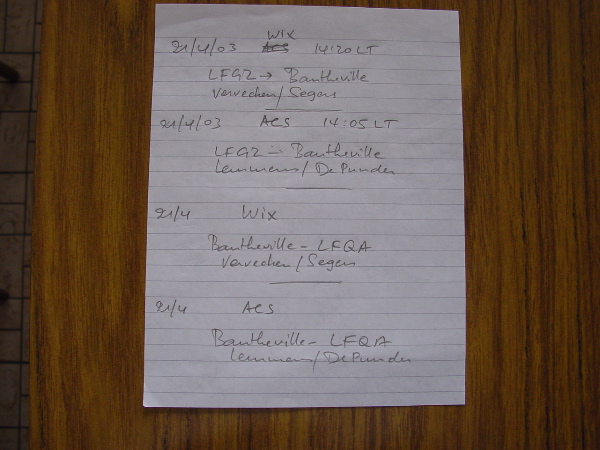 WIX
21/4/03 ACS 14:20 LT
LFGZ → Bantheville
Vervecken/Segers
21/4/03 ACS 14:05 LT
LFGZ → Bantheville
Lemmens/De Punder
21/4 WIX
Bantheville - LFQA
Vervecken/Segers
21/4 ACS
Bantheville - LFQA
Lemmens/De Punder